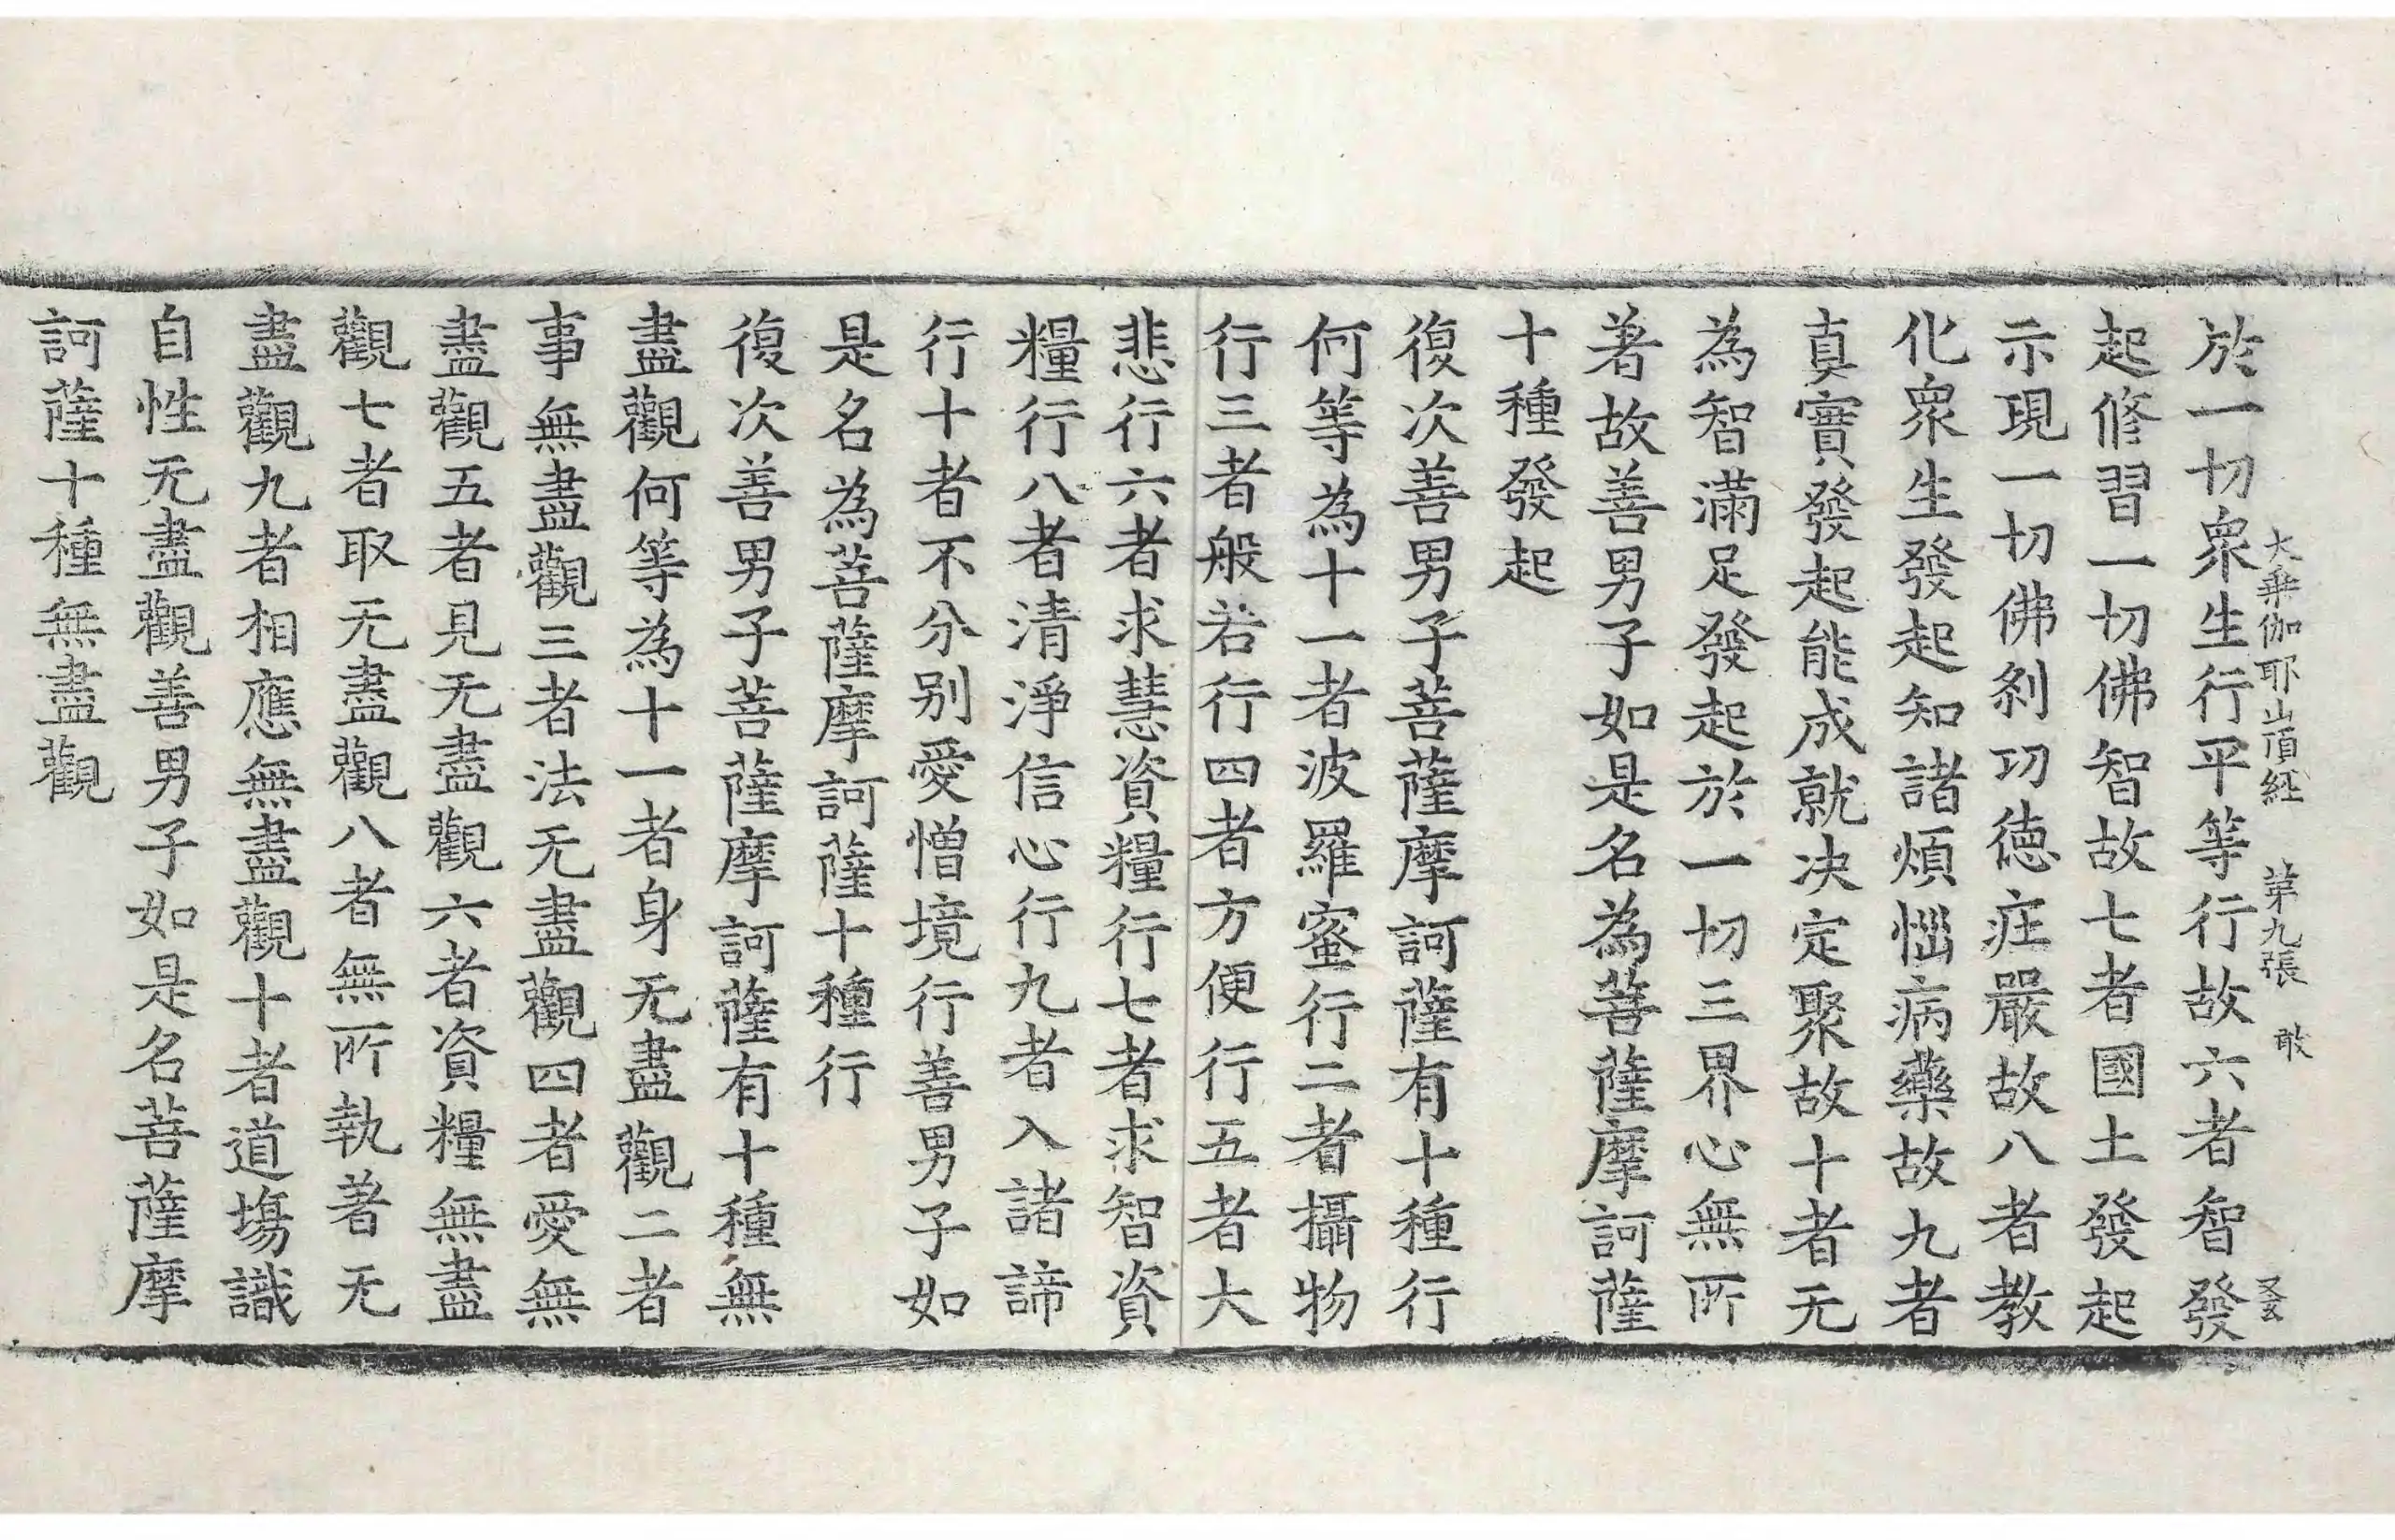 大乗伽耶山頂経　第九張　敢
於一切衆生行平等行故六者智發
起修習一切佛智故七者國土發起
示現一切佛刹功徳庄嚴故八者教
化衆生發起知諸煩惱病藥故九者
真實發起能成就决定聚故十者无
為智滿足發起於一切三界心無所
著故善男子如是名為菩薩摩訶薩
十種發起
復次善男子菩薩摩訶薩有十種行
何等為十一者波羅蜜行二者攝物
行三者般若行四者方便行五者大
悲行六者求慧資糧行七者求智資
糧行八者清淨信心行九者入諸諦
行十者不分别愛憎境行善男子如
是名為菩薩摩訶薩十種行
復次善男子菩薩摩訶薩有十種無
盡觀何等為十一者身无盡觀二者
事無盡觀三者法无盡觀四者愛無
盡觀五者見无盡觀六者資糧無盡
觀七者取无盡觀八者無所執著无
盡觀九者相應無盡觀十者道場識
自性无盡觀善男子如是名菩薩摩
訶薩十種無盡觀